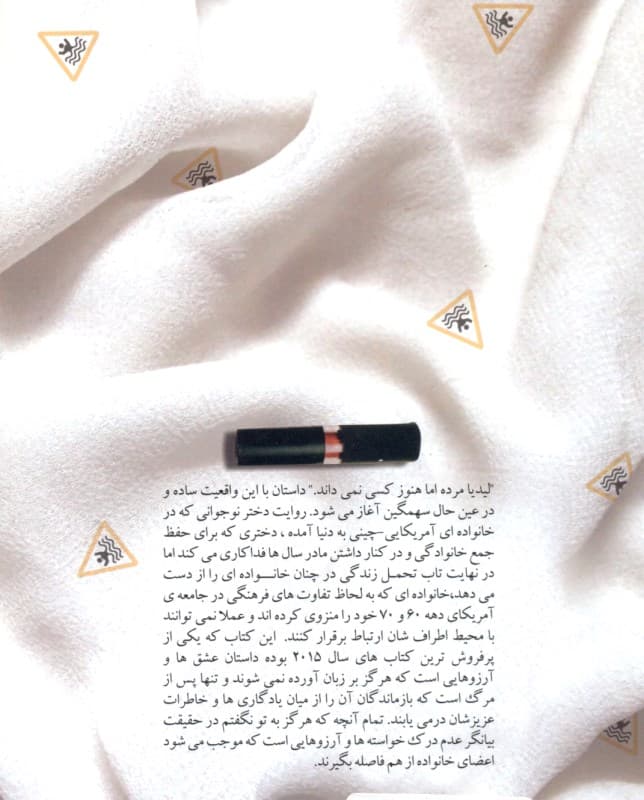 "لیدیا مرده اما هنوز کسی نمی داند." داستان با این واقعیت ساده و
در عین حال سهمگین آغاز می شود. روایت دختر نوجوانی که در
خانواده ای آمریکایی-چینی به دنیا آمده ، دختری که برای حفظ
جمع خانوادگی و در کنار داشتن مادر سال ها فداکاری می کند اما
در نهایت تاب تحمل زندگی در چنان خانواده ای را از دست
می دهد،خانواده ای که به لحاظ تفاوت های فرهنگی در جامعه ی
آمریکای دهه ۶۰ و ۷۰ خود را منزوی کرده اند و عملا نمی توانند
با محیط اطراف شان ارتباط برقرار کنند. این کتاب که یکی از
پرفروش ترین کتاب های سال ۲۰۱۵ بوده داستان عشق ها و
آرزوهایی است که هرگز بر زبان آورده نمی شوند و تنها پس از
مرگ است که بازماندگان آن را از میان یادگاری ها و خاطرات
عزیزشان درمی یابند. تمام آنچه که هرگز به تو نگفتم در حقیقت
بیانگر عدم درک خواسته ها و آرزوهایی است که موجب می شود
اعضای خانواده از هم فاصله بگیرند.